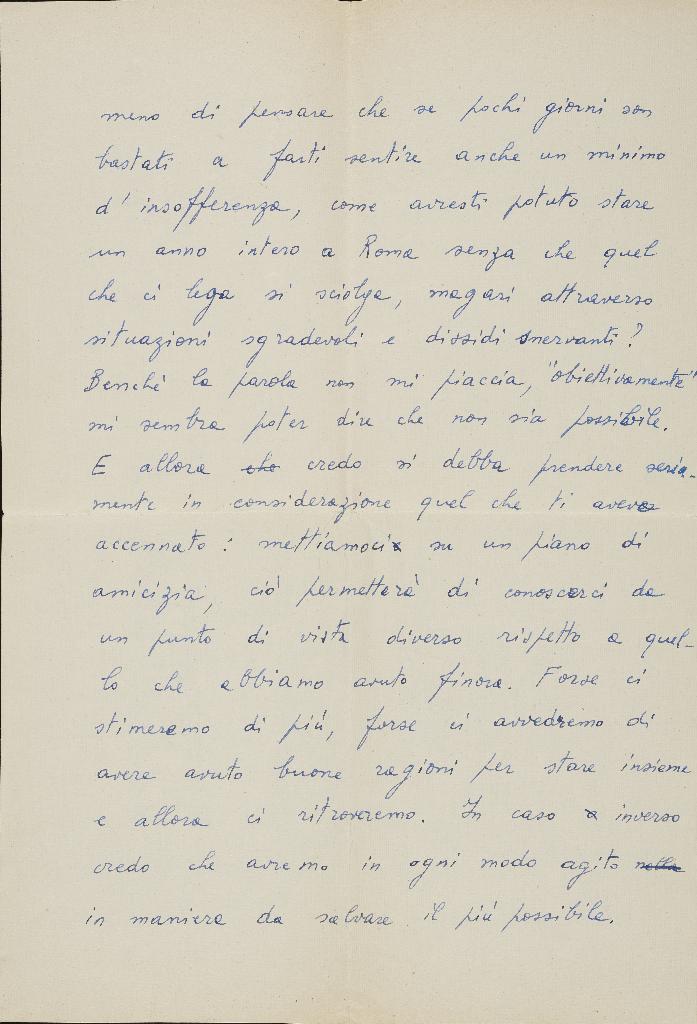 meno di pensare che se pochi giorni son
bastati a farti sentire anche un minimo
d'insofferenza, come avresti potuto stare
un anno intero a Roma senza che quel
che ci lega si sciolga, magari attraverso
situazioni sgradevoli e dissidi snervanti?
Benché la parola non mi piaccia, "obiettivamente"
mi sembra poter dire che non sia possibile.
E allora che credo si debba prendere seria-
mente in considerazione quel che ti avevo
accennato: mettiamoci su un piano di
amicizia, ciò permetterà di conoscerci da
un punto di vista diverso rispetto a quel-
lo che abbiamo avuto finora. Forse ci
stimeremo di più, forse ci avvedremo di
avere avuto buone ragioni per stare insieme
e allora ci ritroveremo. In caso inverso
credo che avremo in ogni modo agito
in maniera da salvare il più possibile.